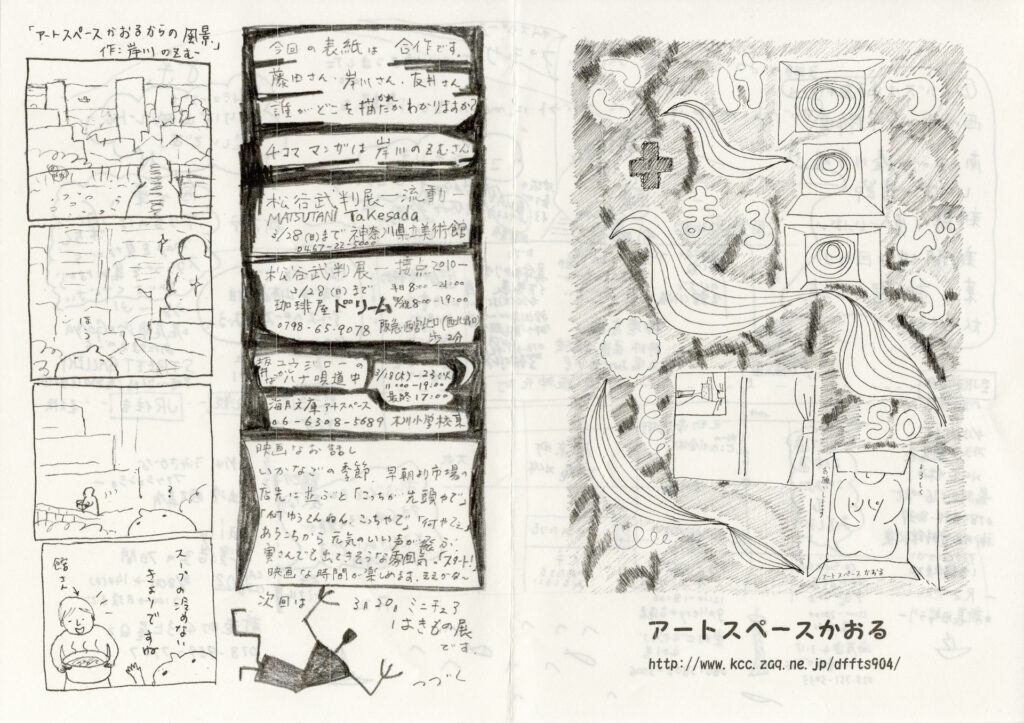 「アートスペースかおるからの風景」
作：岸川のぞむ
スープの冷めない
きょりですね
館さん
今回の表紙は 合作です。
藤田さん、岸川さん、友井さん
誰がどこを描たかわかりますか？
4コママンガは岸川のぞむさん
松谷武判展 ー流動ー
MATSUTANI Takesada
3/28(日)まで 神奈川県立美術館
0467-22-5000
松谷武判展 ー接点2010ー
3/28(日)まで 平日8:00-21:00
珈琲屋ドリーム 8:00-19:00
0798-65-9078 阪急西宮北口
歩2分
ユウジローの
ハナ唄道中
11:00-19:00
最終17:00
海月文庫アートスペース
06-6308-5689 木川小学校東
映画なお話し
いかなごの季節、早朝より市場の
店先に並ぶと「こっちが先頭やで」
「何ゆうてんねん、こっちやで」
あちこちから元気のいい声が飛ぶ
寅さんでも出てきそうな雰囲気、「スタート!」
映画な時間が楽しめます。
次回は 3月20日 ミニチュア
はきもの展
です。
つづく
つ
け
こ
ま
る
ぶ
う
50
よろしく
お願いします
アートスペースかおる
アートスペースかおる
http://www.kcc.zaq.ne.jp/dffts904/